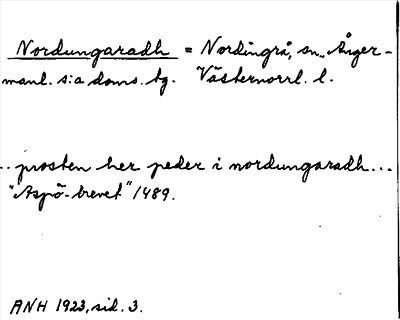 Nordungaradh = Nordingrå, sn., Ånger-
manl. s:a doms. tg. Västernorrl. l.
.. prosten her peder i nordungaradh...
"Aspö-brevet" 1489.
ANH 1923, sid. 3.